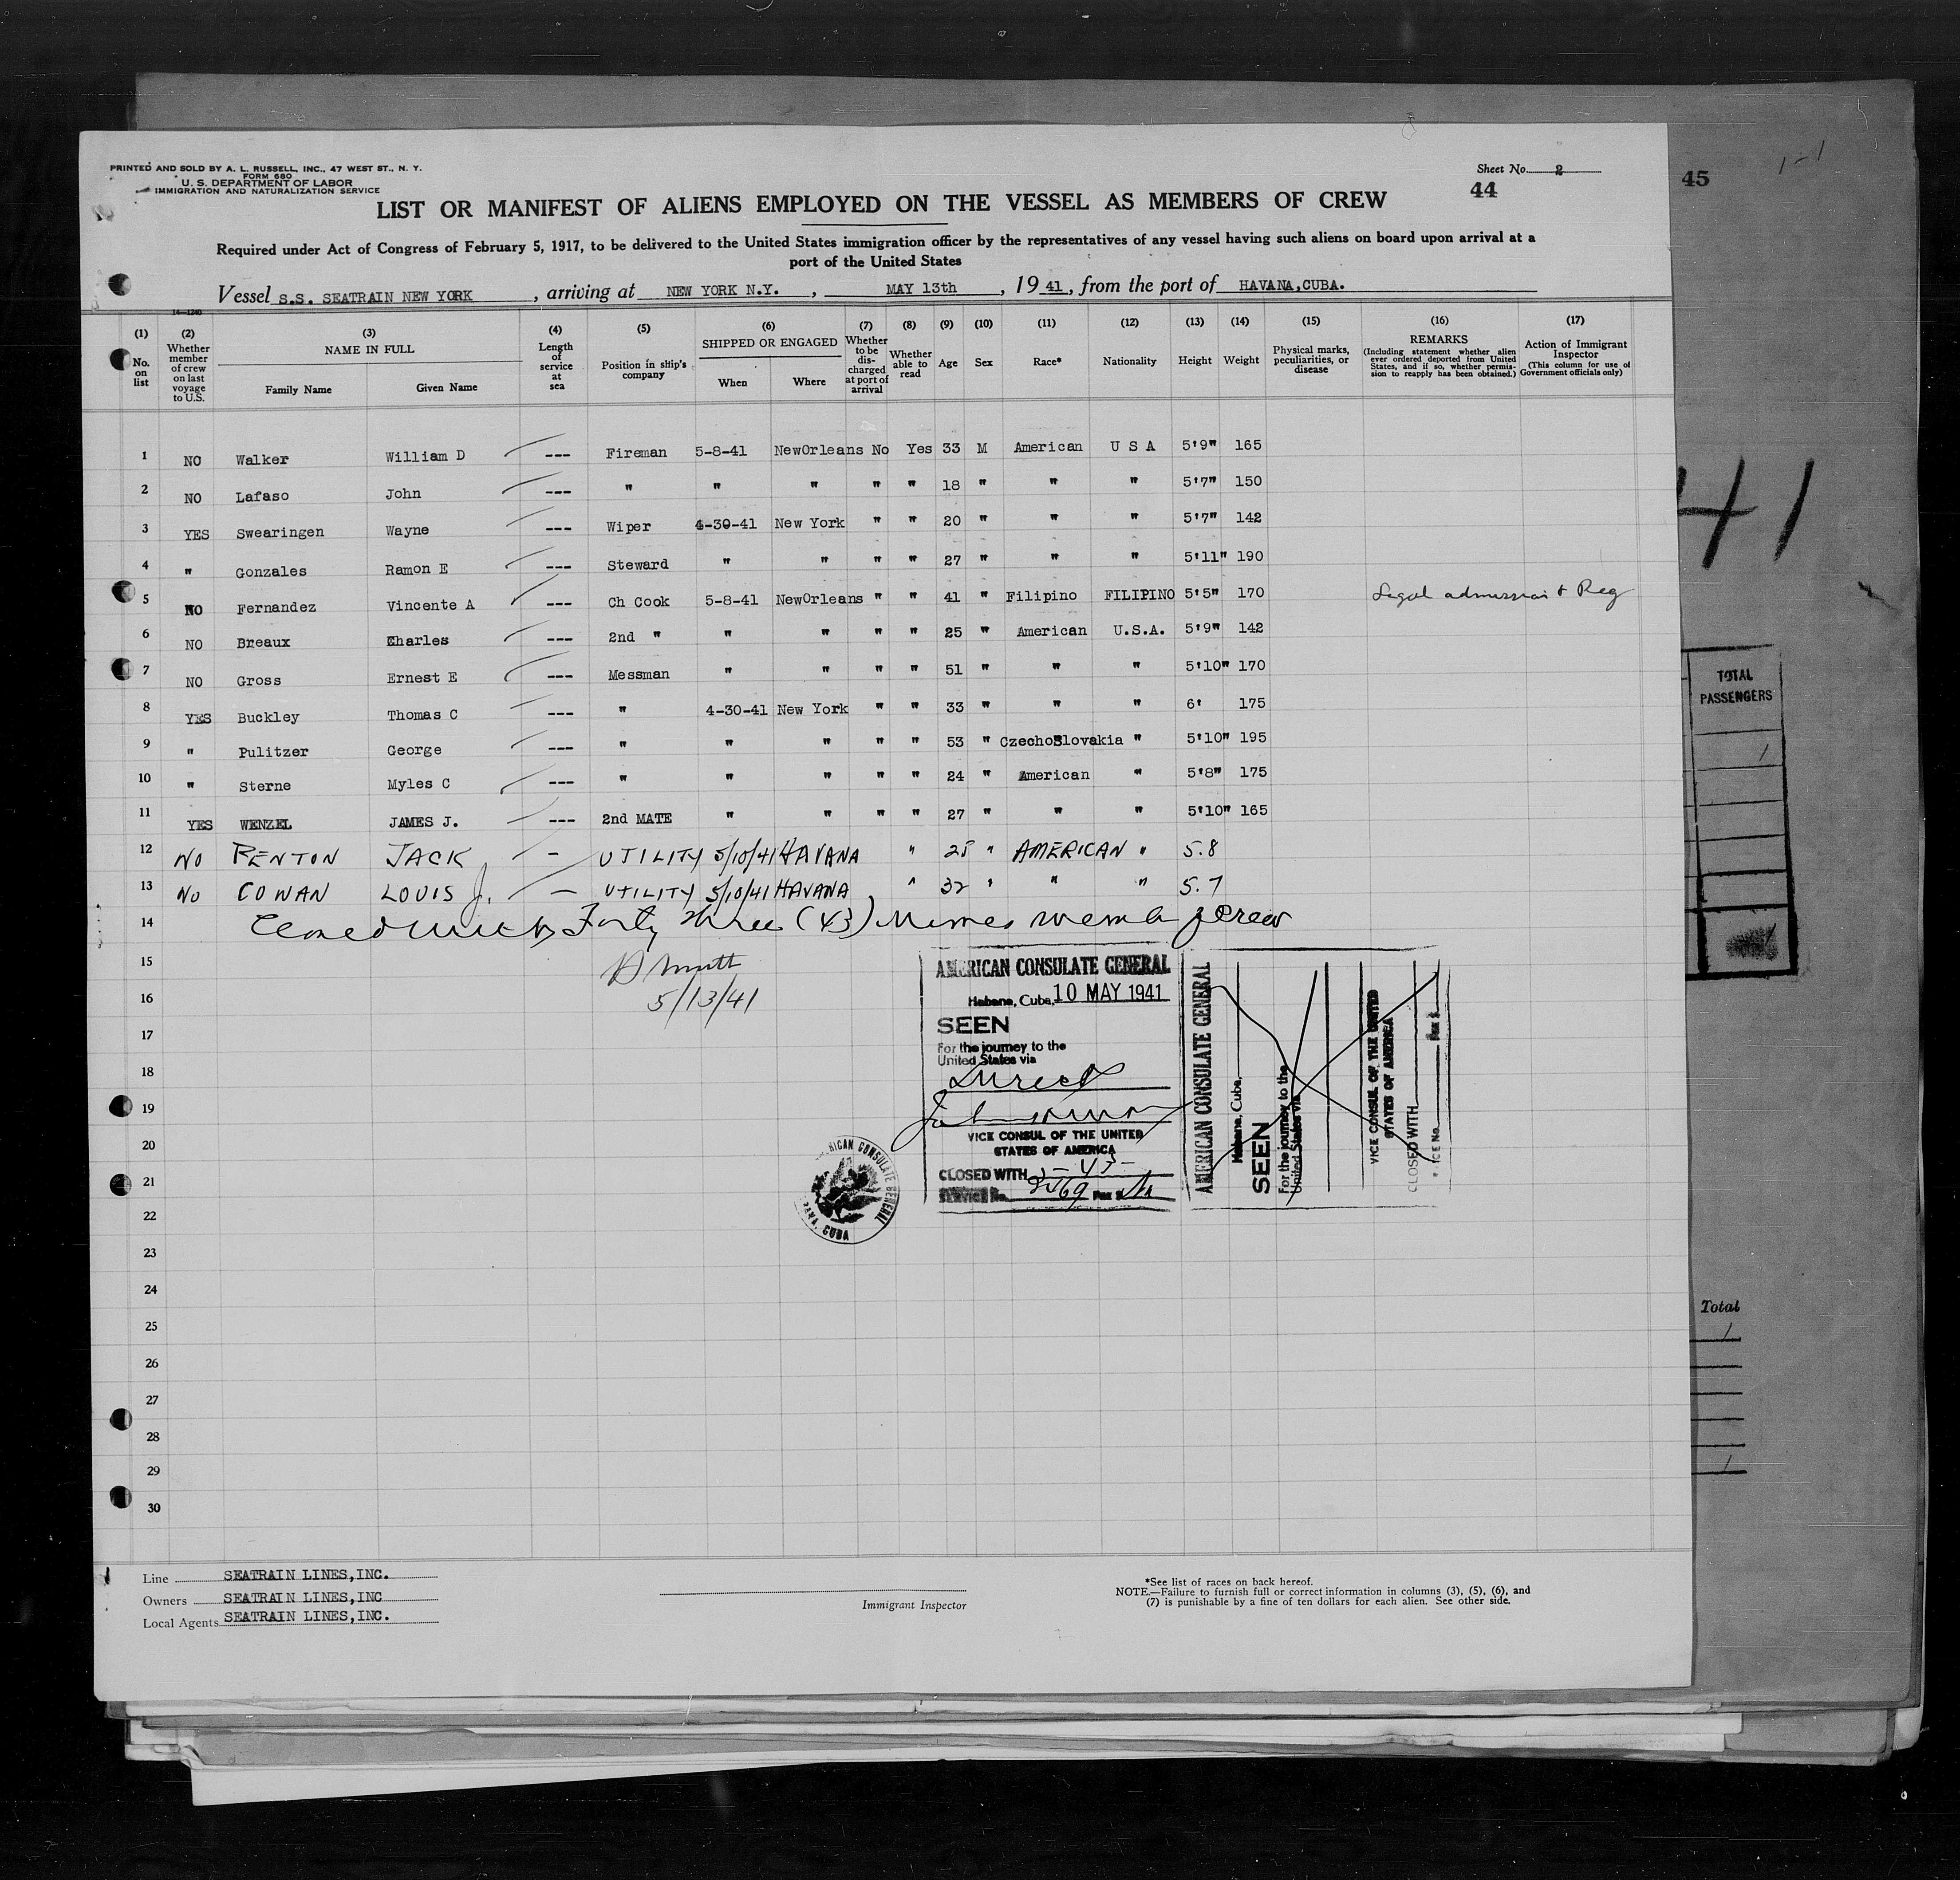 PRINTED AND SOLD BY A. L. RUSSELL, INC., 47 WEST ST., N. Y.
FORM 680
U. S. DEPARTMENT OF LABOR
IMMIGRATION AND NATURALIZATION SERVICE
Sheet No. 2
44
45
1-1
LIST OR MANIFEST OF ALIENS EMPLOYED ON THE VESSEL AS MEMBERS OF CREW
Required under Act of Congress of February 5, 1917, to be delivered to the United States immigration officer by the representatives of any vessel having such aliens on board upon arrival at a
port of the United States
Vessel S.S. SEATRAIN NEW YORK, arriving at NEW YORK N.Y., MAY 13th, 1941, from the port of HAVANA,CUBA.
14-1240
(1) No. on list
(2) Whether member of crew on last voyage to U.S.
(3) NAME IN FULL Family Name Given Name
(4) Length of service at sea
(5) Position in ship's company
(6) SHIPPED OR ENGAGED When Where
(7) Whether to be discharged at port of arrival
(8) Whether able to read
(9) Age
(10) Sex
(11) Race*
(12) Nationality
(13) Height
(14) Weight
(15) Physical marks, peculiarities, or disease
(16) REMARKS (Including statement whether alien ever ordered deported from United States, and if so, whether permission to reapply has been obtained.)
(17) Action of Immigrant Inspector (This column for use of Government officials only)
1 NO Walker William D --- Fireman 5-8-41 NewOrleans No Yes 33 M American U S A 5'9" 165
2 NO Lafaso John --- " " " " " 18 " " " 5'7" 150
3 YES Swearingen Wayne --- Wiper 4-30-41 New York " " 20 " " " 5'7" 142
4 " Gonzales Ramon E --- Steward " " " " 27 " " " 5'11" 190
5 NO Fernandez Vincente A --- Ch Cook 5-8-41 NewOrleans " " 41 " Filipino FILIPINO 5'5" 170 Legal admission & Reg
6 NO Breaux Charles --- 2nd " " " " " 25 " American U.S.A. 5'9" 142
7 NO Gross Ernest E --- Messman " " " " 51 " " " 5'10" 170
8 YES Buckley Thomas C --- " 4-30-41 New York " " 33 " " " 6' 175
9 " Pulitzer George --- " " " " " 53 " CzechoSlovakia " 5'10" 195
10 " Sterne Myles C --- " " " " " 24 " American " 5'8" 175
11 YES WENZEL JAMES J. --- 2nd MATE " " " " 27 " " " 5'10" 165
12 NO RENTON JACK - UTILITY 5/10/41 HAVANA " 25 " AMERICAN " 5.8
13 NO COWAN LOUIS J. - UTILITY 5/10/41 HAVANA " 32 " " " 5.7
14 Closed with Forty three (43) Names memb of crew
15
16
5/13/41
17
18
19
20
21
22
23
24
25
26
27
28
29
30
AMERICAN CONSULATE GENERAL
Habana, Cuba, 10 MAY 1941
SEEN
For the journey to the
United States via
Direct
VICE CONSUL OF THE UNITED
STATES OF AMERICA
CLOSED WITH -43-
Service No.
AMERICAN CONSULATE GENERAL
Habana, Cuba,
SEEN
For the journey to the
United States via
VICE CONSUL OF THE UNITED
STATES OF AMERICA
CLOSED WITH
AMERICAN CONSULATE GENERAL
CUBA
41
TOTAL
PASSENGERS
1
Total
1
1
Line SEATRAIN LINES,INC.
Owners SEATRAIN LINES,INC
Local Agents SEATRAIN LINES,INC.
Immigrant Inspector
*See list of races on back hereof.
NOTE.—Failure to furnish full or correct information in columns (3), (5), (6), and
(7) is punishable by a fine of ten dollars for each alien. See other side.